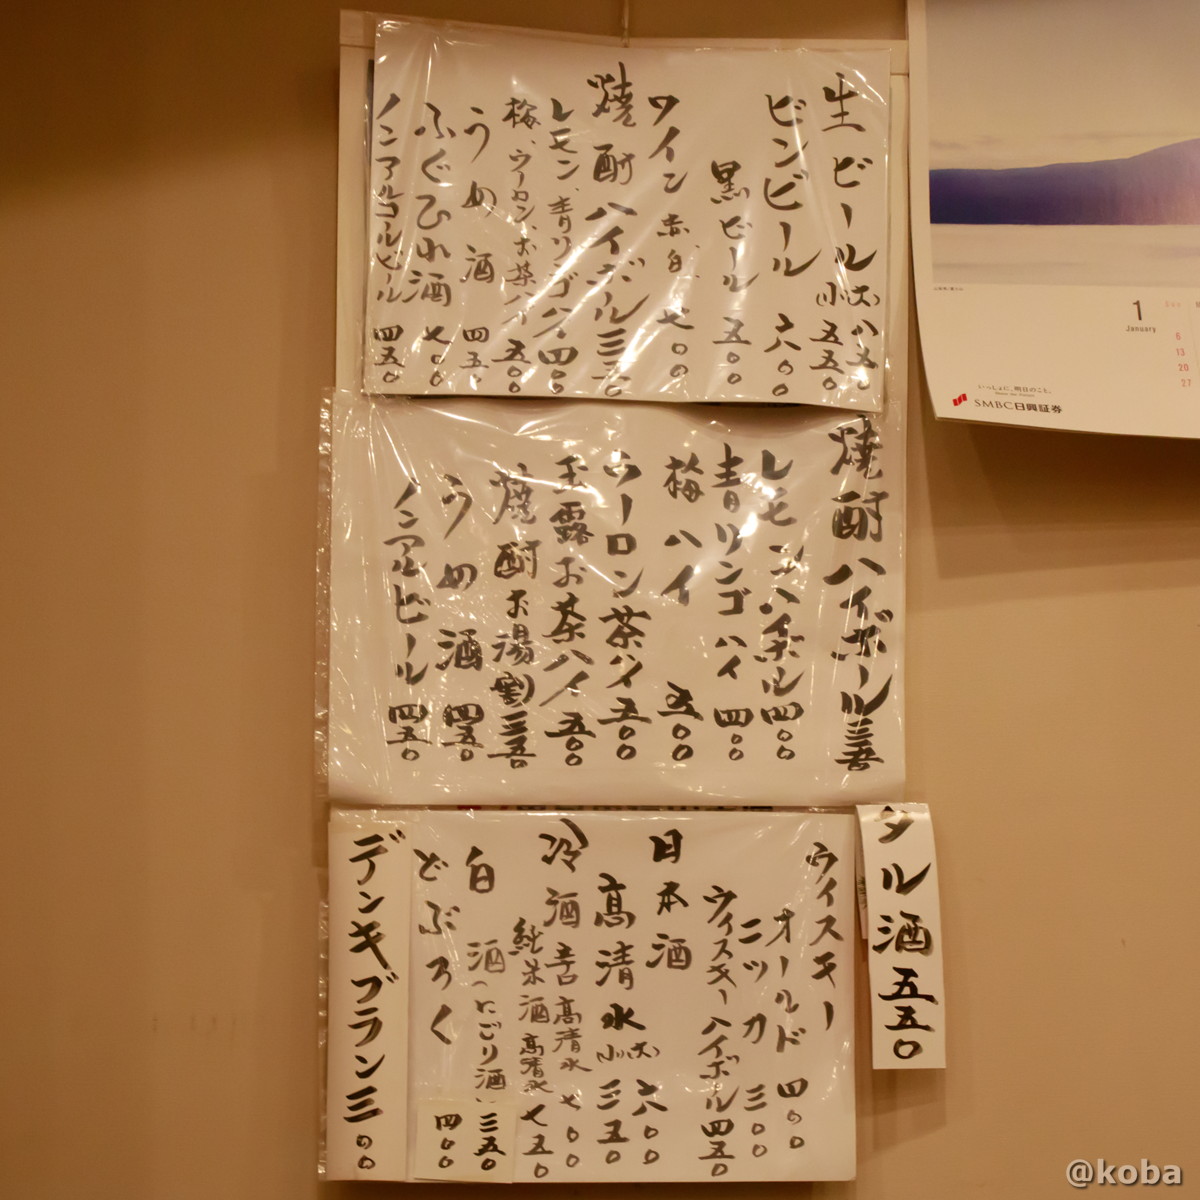 生ビール (大) 八五〇
(小) 五五〇
ビンビール 六〇〇
黒ビール 五〇〇
ワイン 赤白 七〇〇
焼酎ハイボール 三五〇
レモン、青リンゴハイ 四〇〇
梅、ウーロン、お茶ハイ 五〇〇
うめ酒 四五〇
ふぐひれ酒 七〇〇
ノンアルコールビール 四五〇
焼酎ハイボール 三五〇
レモンハイボール 四〇〇
青リンゴハイ 四〇〇
梅ハイ 五〇〇
ウーロン茶ハイ 五〇〇
玉露お茶ハイ 五〇〇
焼酎お湯割 三五〇
うめ酒 四五〇
ノンアルビール 四五〇
タル酒 五五〇
ウイスキー
オールド 四〇〇
ニッカ 三〇〇
ウイスキーハイボール 四五〇
日本酒
高清水 (大) 六〇〇
(小) 三五〇
冷酒 辛口 高清水 七〇〇
純米酒 高清水 七五〇
白酒(にごり酒) 三五〇
どぶろく 四〇〇
デンキブラン 三〇〇
1
January
6
13
20
27
いっしょに、明日のこと。
SMBC日興証券
@koba